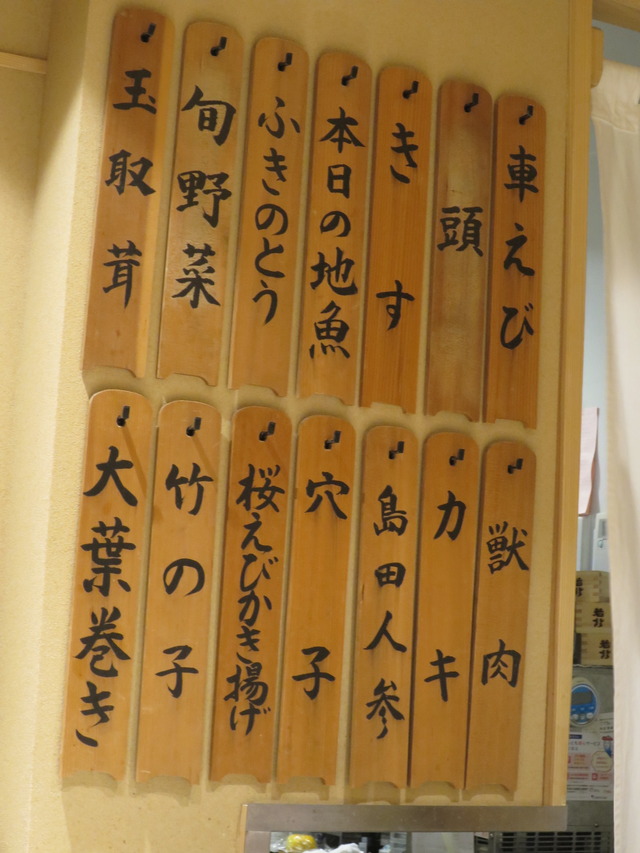 車えび
頭
きす
本日の地魚
ふきのとう
旬野菜
玉取茸
獣肉
カキ
島田人参
穴子
桜えびかき揚げ
竹の子
大葉巻き